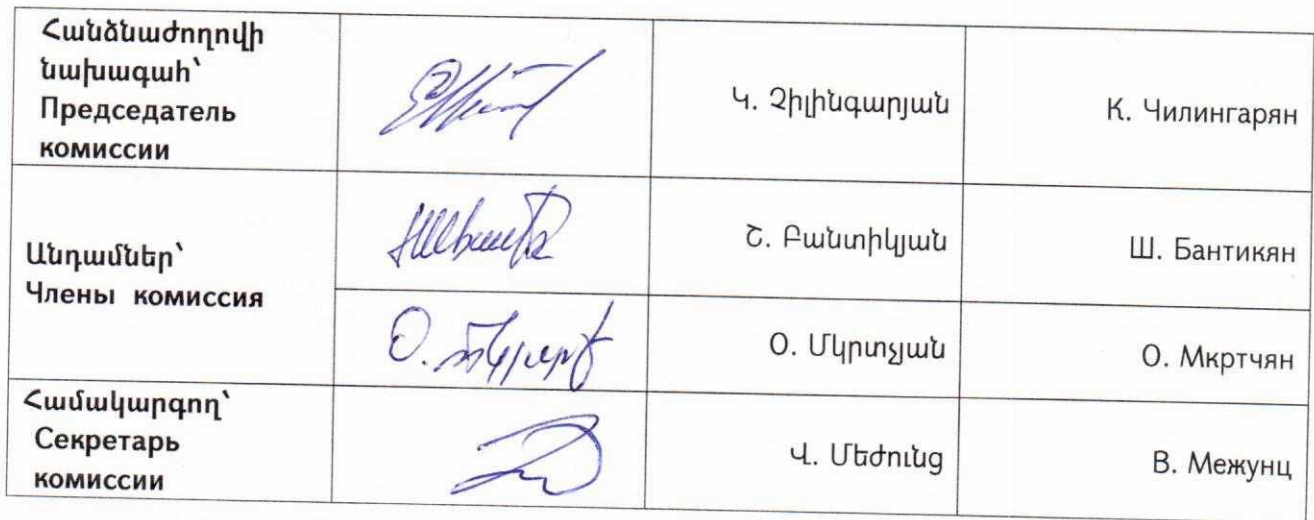 Հանձնաժողովի
նախագահ՝
Председатель
комиссии
Կ. Չիլինգարյան
К. Чилингарян
Անդամներ՝
Члены комиссия
Շ. Բանտիկյան
Ш. Бантикян
О. Մկրտչյան
О. Мкртчян
Համակարգող՝
Секретарь
комиссии
Վ. Մեժունց
В. Межунц